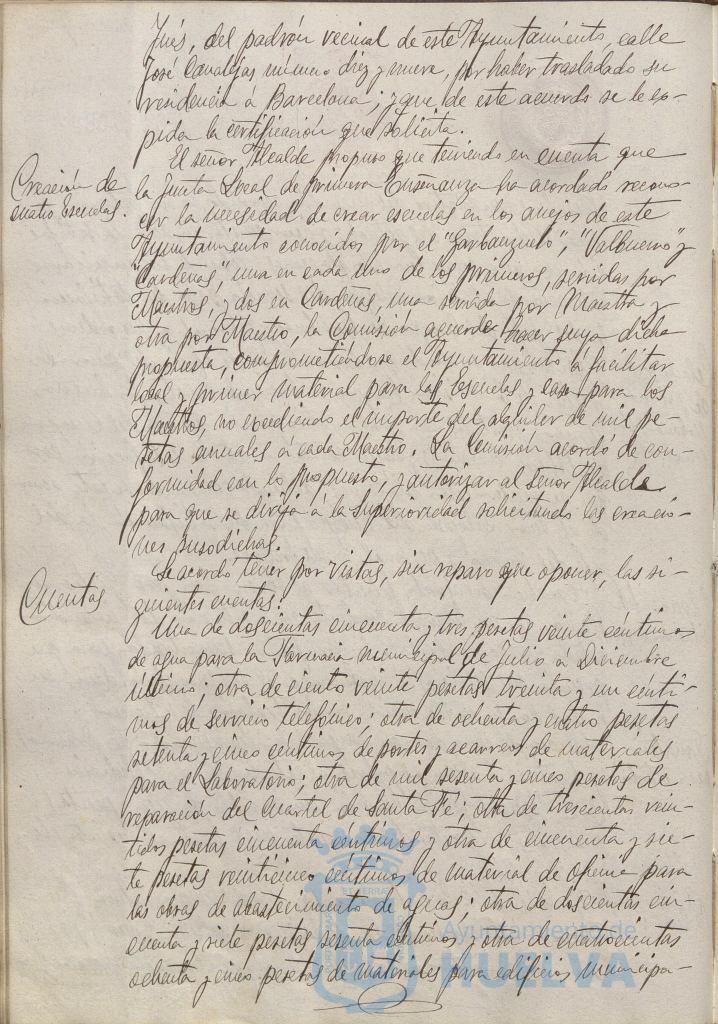 Inés, del padrón vecinal de este Ayuntamiento, calle
José Canalejas número diez y nueve, por haber trasladado su
residencia á Barcelona; y que de este acuerdo se le ex-
pida la certificación que solicita.
Creación de
cuatro Escuelas.
El señor Alcalde propuso que teniendo en cuenta que
la Junta Local de primera Enseñanza ha acordado recono-
cer la necesidad de crear escuelas en los anejos de este
Ayuntamiento conocidos por el "Garbanzuelo", "Valbueno" y
"Cardeñas", una en cada uno de los primeros, servidas por
Maestros, y dos en Cardeñas, una servida por Maestra y
otra por Maestro, la Comisión acuerde hacer suya dicha
propuesta, comprometiéndose el Ayuntamiento á facilitar
local y primer material para las Escuelas y casa para los
Maestros, no excediendo el importe del alquiler de mil pe-
setas anuales á cada Maestro. La Comisión acordó de con-
formidad con lo propuesto, y autorizar al Señor Alcalde
para que se dirija á la Superioridad solicitando las creacio-
nes susodichas.
Cuentas
Se acordó tener por vistas, sin reparo que oponer, las si-
guientes cuentas:
Una de doscientas cincuenta y tres pesetas veinte céntimos
de agua para la Farmacia municipal de Julio á Diciembre
último; otra de ciento veinte pesetas treinta y un cénti-
mos de servicio telefónico; otra de ochenta y cuatro pesetas
setenta y cinco céntimos de portes y acarreos de materiales
para el Laboratorio; otra de mil sesenta y cinco pesetas de
reparación del Cuartel de Santa Fé; otra de trescientas vein-
tidos pesetas cincuenta céntimos y otra de cincuenta y sie-
te pesetas veinticinco céntimos de material de oficina para
las obras de abastecimiento de aguas; otra de doscientas cin-
cuenta y siete pesetas sesenta céntimos y otra de cuatrocientas
ochenta y cinco pesetas de materiales para edificios municipa-
Ayuntamiento de
HUELVA